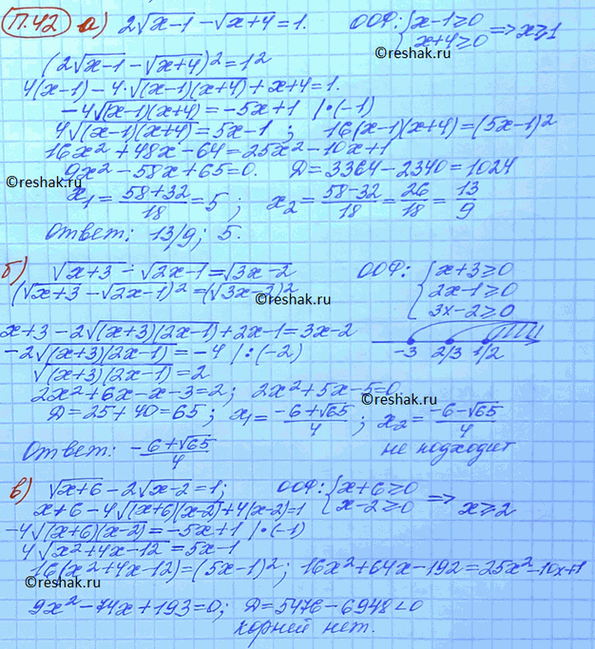 П.42 а) 2√x-1 - √x+4 = 1. ООФ: { x-1≥0 x+4≥0 => x≥1
©reshak.ru
(2√x-1 - √x+4)² = 1²
4(x-1) - 4·√(x-1)(x+4) + x+4 = 1.
-4√(x-1)(x+4) = -5x+1 |·(-1)
4√(x-1)(x+4) = 5x-1 ; 16(x-1)(x+4) = (5x-1)²
16x² + 48x - 64 = 25x² - 10x + 1
9x² - 58x + 65 = 0. D = 3364 - 2340 = 1024
©reshak.ru
x₁ = 58+32/18 = 5 ; x₂ = 58-32/18 = 26/18 = 13/9
Ответ: 13/9; 5.
б) √x+3 - √2x-1 = √3x-2 ООФ: { x+3≥0 2x-1≥0 3x-2≥0
(√x+3 - √2x-1)² = (√3x-2)²
©reshak.ru
x+3 - 2√(x+3)(2x-1) + 2x-1 = 3x-2
-2√(x+3)(2x-1) = -4 |:(-2) -3 2/3 1/2
√(x+3)(2x-1) = 2
2x² + 6x - x - 3 = 2; 2x² + 5x - 5 = 0
©reshak.ru
D = 25 + 40 = 65 ; x₁ = -6+√65/4 ; x₂ = -6-√65/4
не подходит
Ответ: -6+√65/4
в) √x+6 - 2√x-2 = 1; ООФ: { x+6≥0 x-2≥0 => x≥2
x+6 - 4√(x+6)(x-2) + 4(x-2) = 1
-4√(x+6)(x-2) = -5x+1 |·(-1)
4√x²+4x-12 = 5x-1
16(x²+4x-12) = (5x-1)²; 16x² + 64x - 192 = 25x² - 10x + 1
©reshak.ru
9x² - 74x + 193 = 0; D = 5476 - 6948 < 0
корней нет.